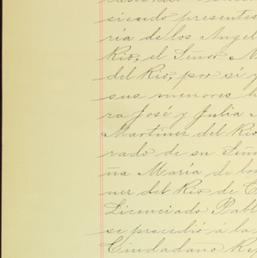 siendo presentes
ría de los Angel
Río, el Señor M
del Río, por sí y
sus menores h
ra José y Julia
Martinez del Río
rado de su Seño
ña María de los
nez del Río de C
Licenciado Pabl
se procedió á la
Ciudadano R